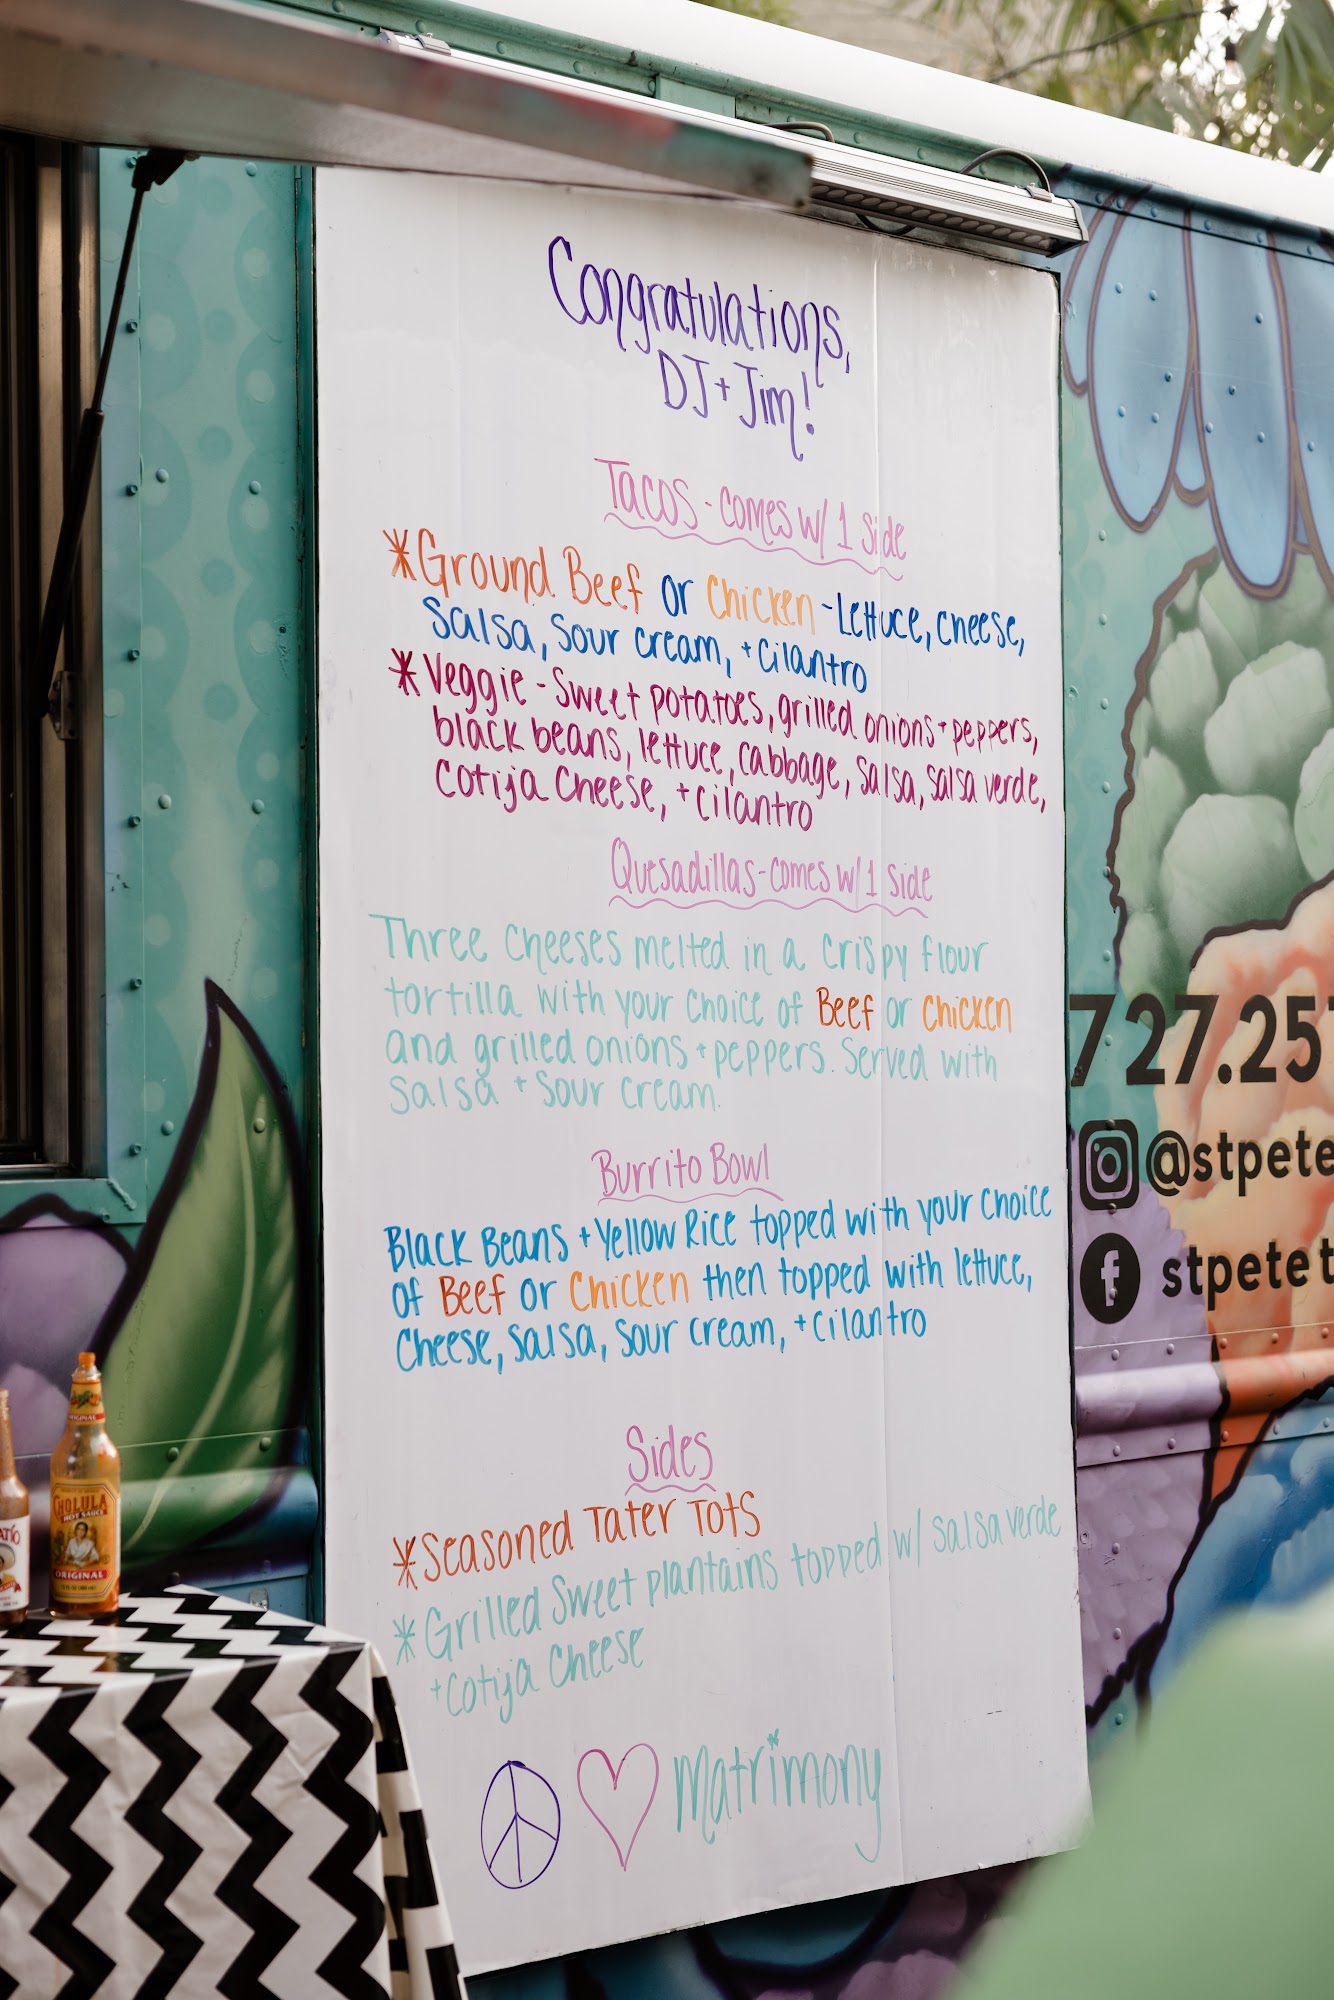 Congratulations,
DJ + Jim!
Tacos - comes w/ 1 side
*Ground Beef or Chicken - Lettuce, cheese,
Salsa, Sour cream, + cilantro
*Veggie - Sweet potatoes, grilled onions + peppers,
black beans, lettuce, cabbage, salsa, salsa verde,
Cotija Cheese, + cilantro
Quesadillas - comes w/ 1 side
Three Cheeses melted in a crispy flour
tortilla with your choice of Beef or Chicken
and grilled onions + peppers. Served with
Salsa + Sour cream.
Burrito Bowl
Black Beans + Yellow Rice topped with your choice
of Beef or Chicken then topped with lettuce,
Cheese, salsa, sour cream, + cilantro
Sides
*Seasoned Tater Tots
*Grilled Sweet plantains topped w/ salsa verde
+ Cotija Cheese
Matrimony
727.25
@stpete
stpete t
CHOLULA
HOT SAUCE
ORIGINAL
ORIGINAL